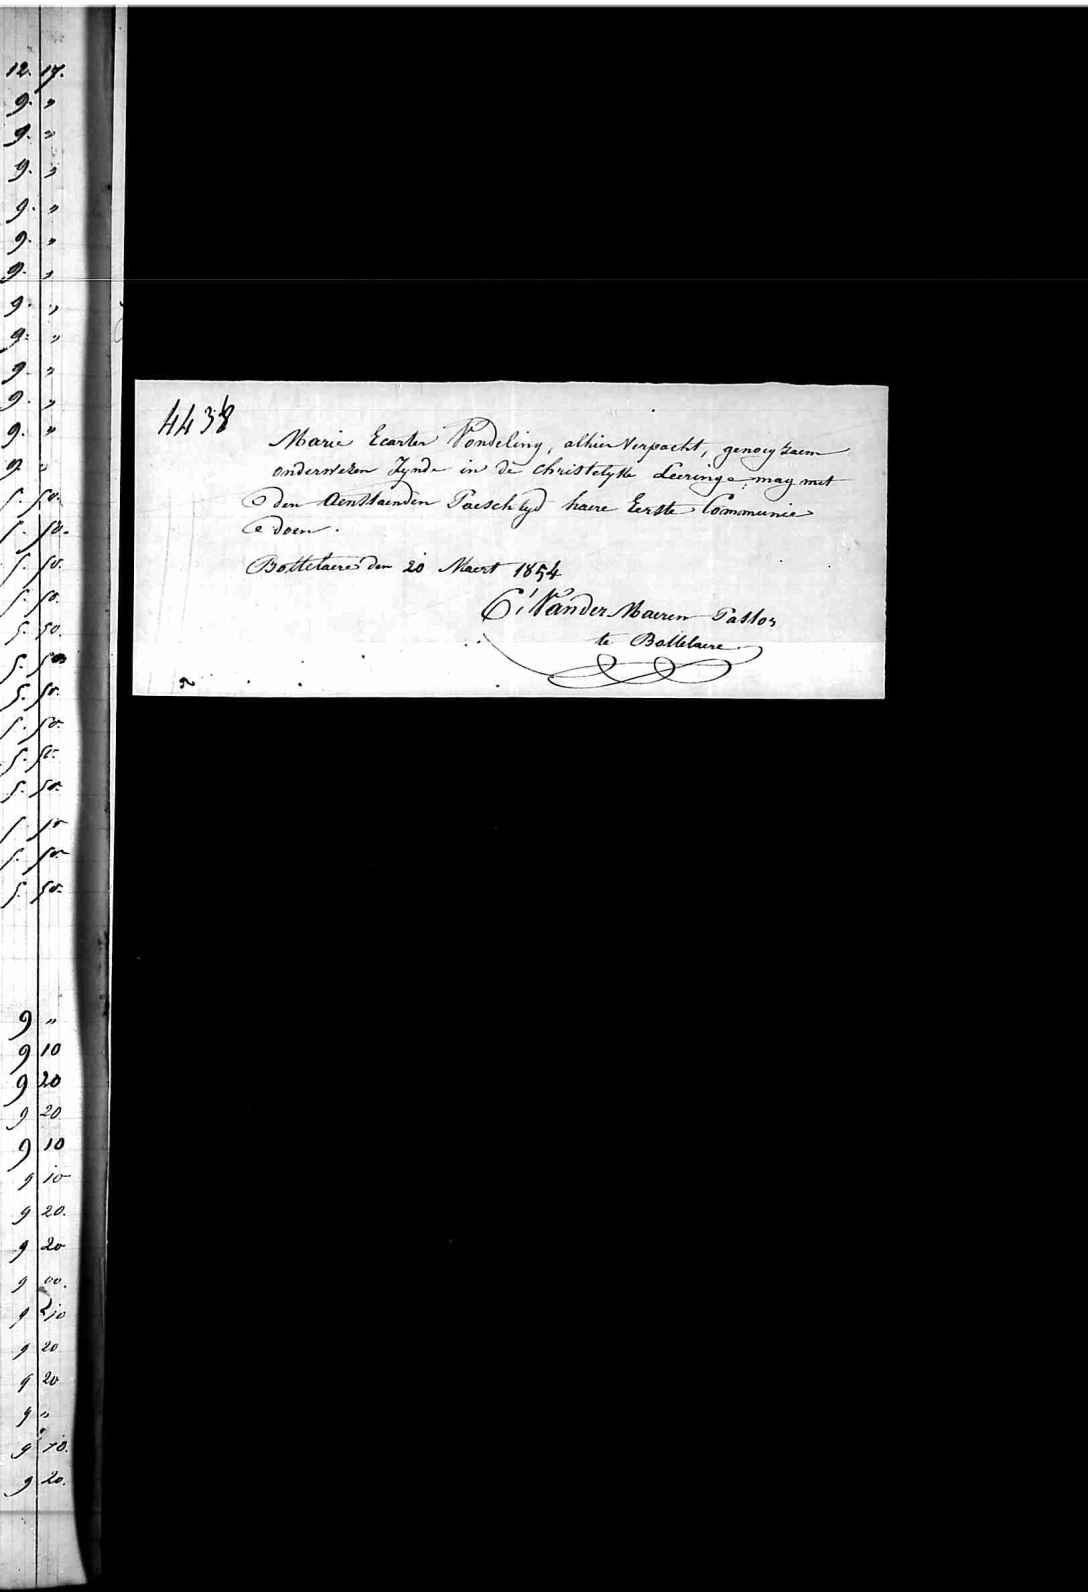 12. 17.
9. "
9. "
9. "
9. "
9. "
9. "
9. "
9. "
9. "
9. "
9. "
9. "
5. 50.
5. 50.
5. 50.
5. 50.
5. 50.
5. 50.
5. 50.
5. 50.
5. 50.
5. 50.
5. 50
5. 50.
5. 50.
9 "
9 10
9 20
9 20
9 10
9 10
9 20.
9 20
9
9 10
9 20
9 20
9 "
9 10.
9 20.
4438
Marie Ecarter Vondeling, alhier Verpacht, genoegzaem
onderwezen Zynde in de christelyke Leeringe, mag met
den aenstaenden Paeschtyd haere Eerste Communie
doen.
Bottelaere den 20 Maert 1854
C. Vander Maeren Pastor
te Bottelaere.